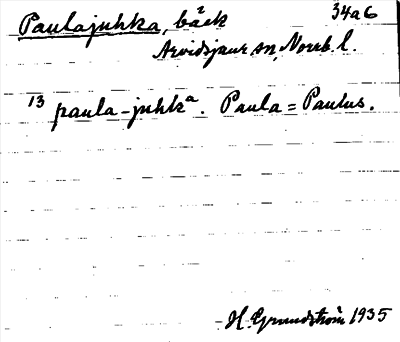 Paulajuhka, bäck 34a6
Arvidsjaur sn, Norrb. l.
13 paula-juhkᵃ. Paula = Paulus.
H. Grundström 1935